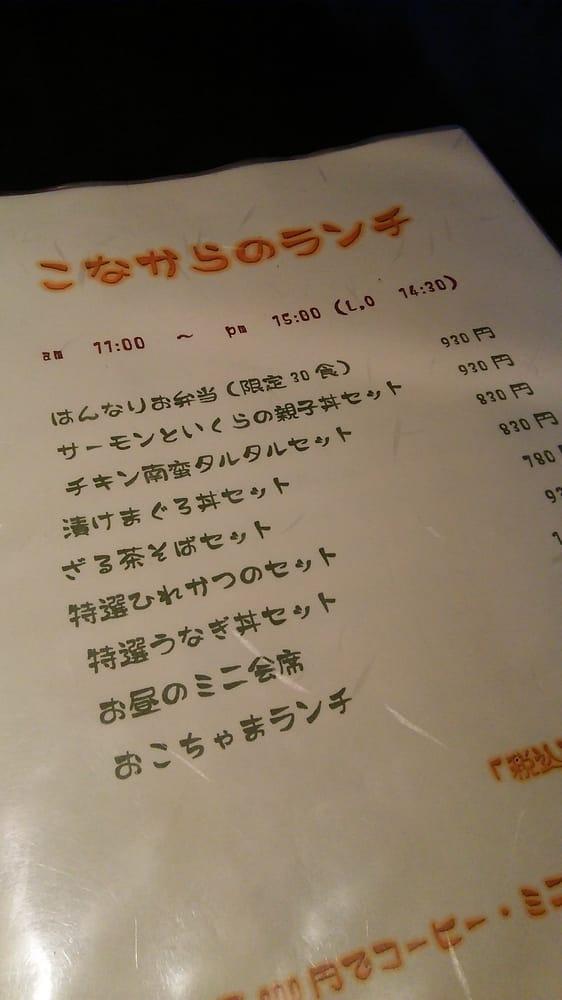 こなからのランチ
am 11:00 ～ pm 15:00 (L.O 14:30)
はんなりお弁当(限定30食) 930円
サーモンといくらの親子丼セット 930円
チキン南蛮タルタルセット 830円
漬けまぐろ丼セット 830円
ざる茶そばセット 780
特選ひれかつのセット
特選うなぎ丼セット
お昼のミニ会席
おこちゃまランチ
「税込
円でコーヒー・ミニ